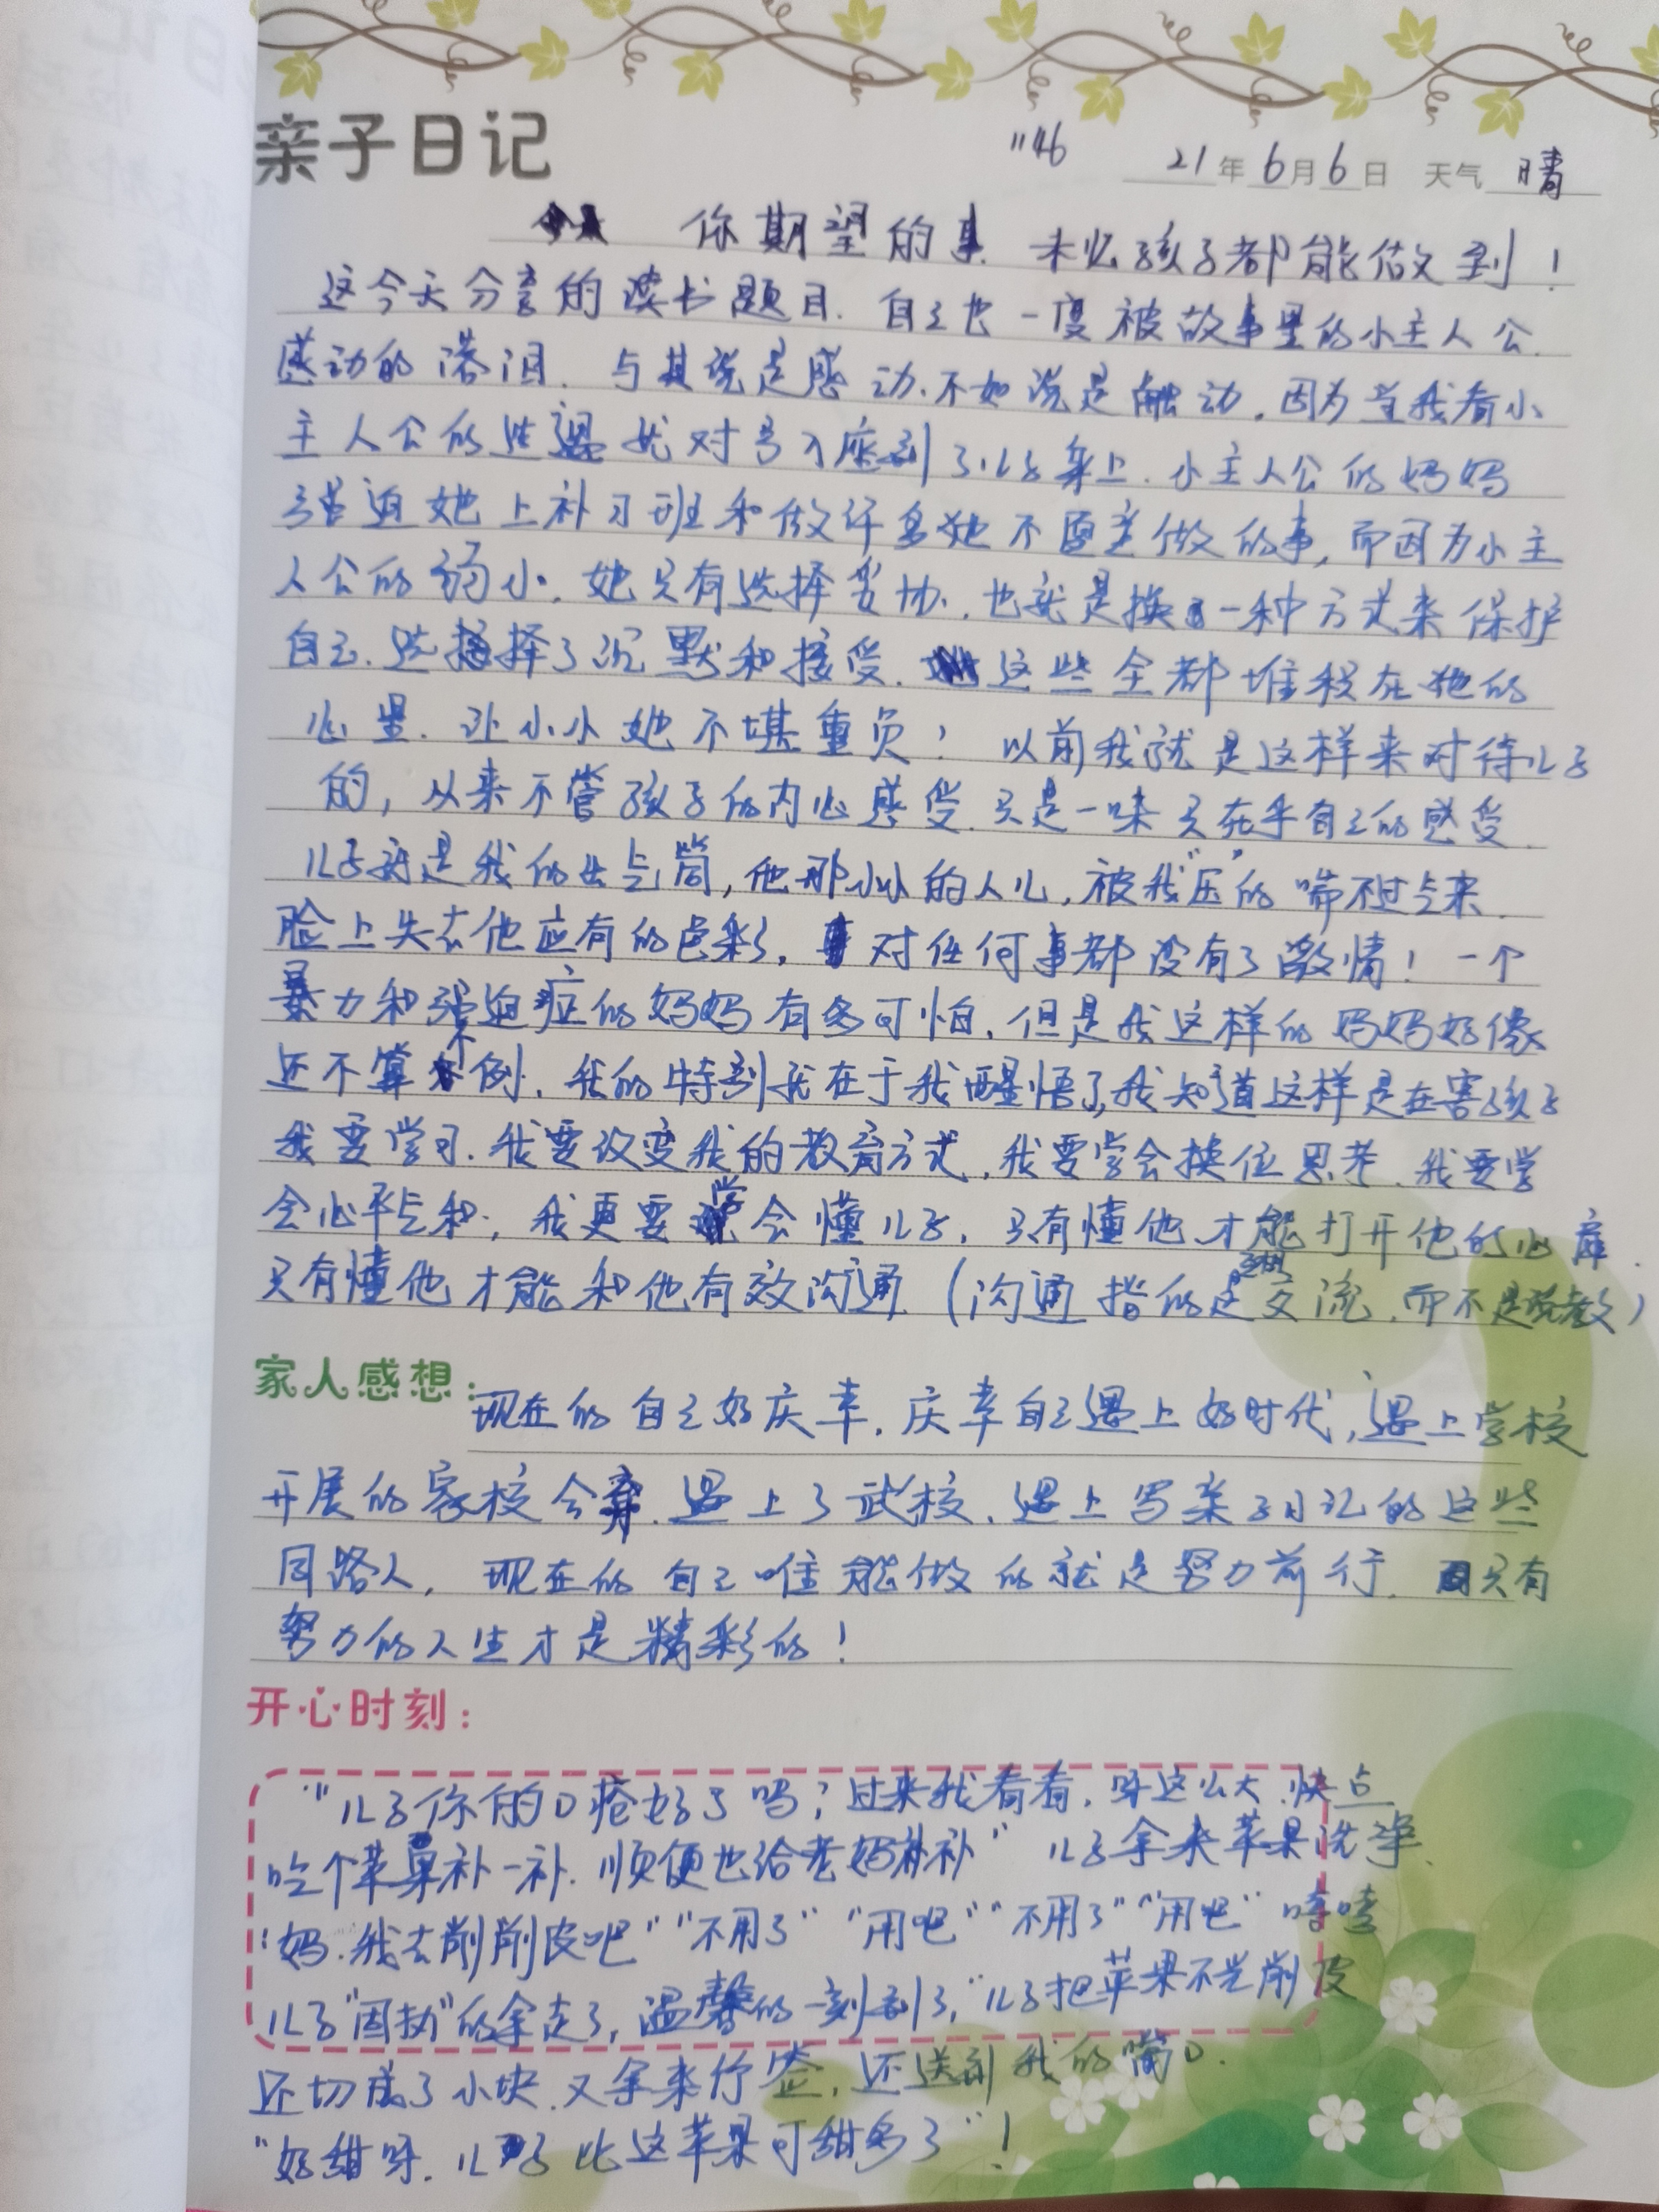 亲子日记
1146 21年6月6日 天气 晴
你期望的事 未必孩子都能做到！
这今天分享的读书题目．自己也一度被故事里的小主人公
感动的落泪．与其说是感动．不如说是触动．因为当我看小
主人公的遭遇就对号入座到了儿子身上．小主人公的妈妈
强迫她上补习班和做许多她不愿意做的事，而因为小主
人公的弱小．她只有选择妥协．也就是换一种方式来保护
自己．选择了沉默和接受．这些全都堆积在她的
心里．让小小她不堪重负！以前我就是这样来对待儿子
的，从来不管孩子的内心感受．只是一味只在乎自己的感受．
儿子就是我的出气筒，他那小小的人儿，被我"压"的喘不过气来．
脸上失去他应有的色彩，对任何事都没有了激情！一个
暴力和强迫症的妈妈有多可怕．但是我这样的妈妈好像
还不算个例．我的特别就在于我醒悟了，我知道这样是在害孩子
我要学习．我要改变我的教育方式．我要学会换位思考．我要学
会心平气和．我更要学会懂儿子．只有懂他才能打开他的心扉．
只有懂他才能和他有效沟通（沟通指的是交流．而不是说教）
家人感想：现在的自己好庆幸．庆幸自己遇上好时代，遇上学校
开展的家校合育．遇上了武校．遇上写亲子日记的这些
同路人，现在的自己唯能做的就是努力前行．只有
努力的人生才是精彩的！
开心时刻：
"儿子你的口疮好了吗？过来我看看．呀这么大．快点
吃个苹果补一补．顺便也给老妈补补" 儿子拿来苹果洗净．
"妈．我去削削皮吧""不用了""用吧""不用了""用吧" 嘻嘻
儿子"困扰"的拿走了，温馨的一刻到了，"儿子把苹果不光削皮
还切成了小块．又拿来竹签，还送到我的嘴口．
"好甜呀．儿子比这苹果可甜多了"！